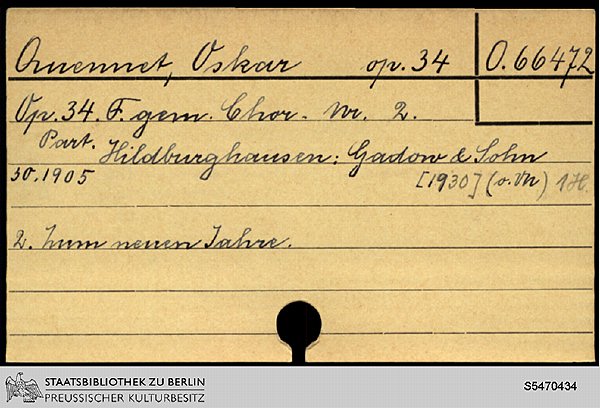 Quennet, Oskar op. 34 O. 66472
Op. 34. F. gem. Chor. Nr. 2.
Part. Hildburghausen: Gadow & Sohn
30.1905 [1930] (o. Vn) 1 H.
2. Zum neuen Jahre.
STAATSBIBLIOTHEK ZU BERLIN
PREUSSISCHER KULTURBESITZ
S5470434